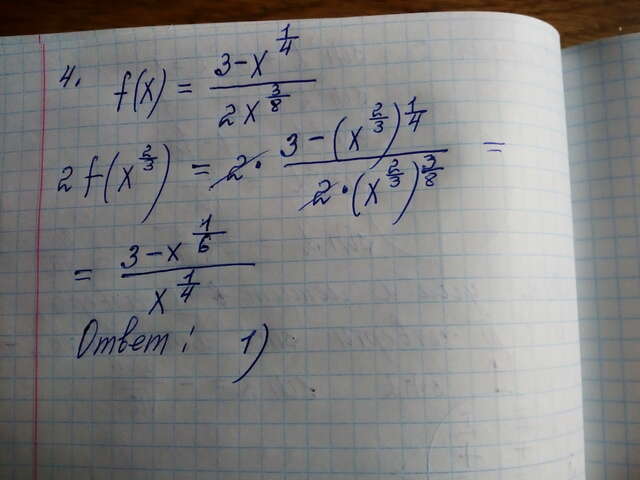 4. f(x) = (3-x^(1/4))/(2x^(3/8))
2f(x^(2/3)) = 2·(3-(x^(2/3))^(1/4))/(2·(x^(2/3))^(3/8)) =
= (3-x^(1/6))/(x^(1/4))
Ответ: 1)